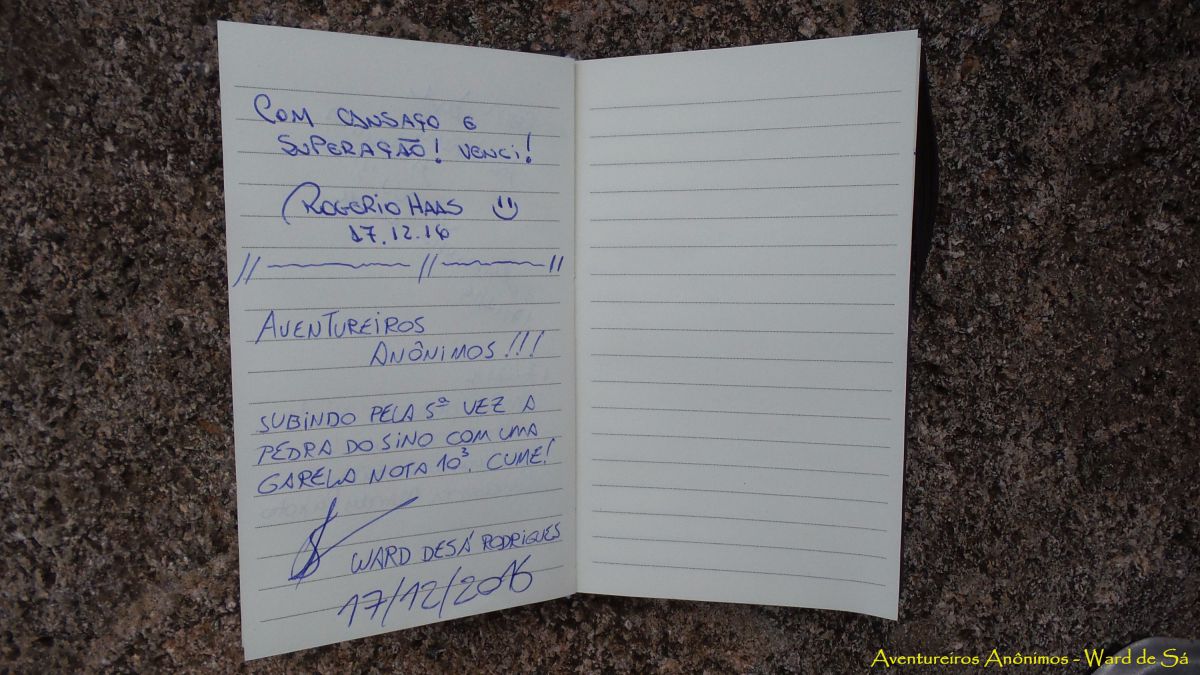 COM CANSAÇO E
SUPERAÇÃO! VENCI!
ROGERIO HAAS
17.12.16
AVENTUREIROS
ANÔNIMOS!!!
SUBINDO PELA 5ª VEZ A
PEDRA DO SINO COM UMA
GARELA NOTA 10³. CUME!
WARD DE SÁ RODRIGUES
17/12/2016
Aventureiros Anônimos - Ward de Sá